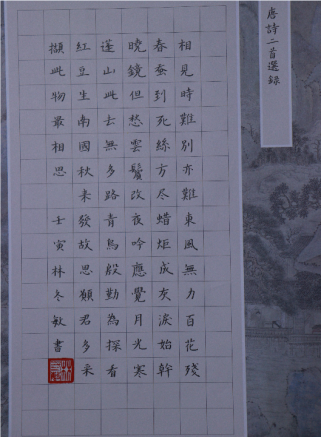 唐詩二首選錄
相見時難別亦難東風無力百花殘
春蚕到死絲方尽蜡炬成灰淚始幹
曉鏡但愁雲鬢改夜吟應覺月光寒
蓬山此去無多路青鳥殷勤為探看
紅豆生南國秋来發故思願君多采
擷此物最相思 壬寅林冬敏書